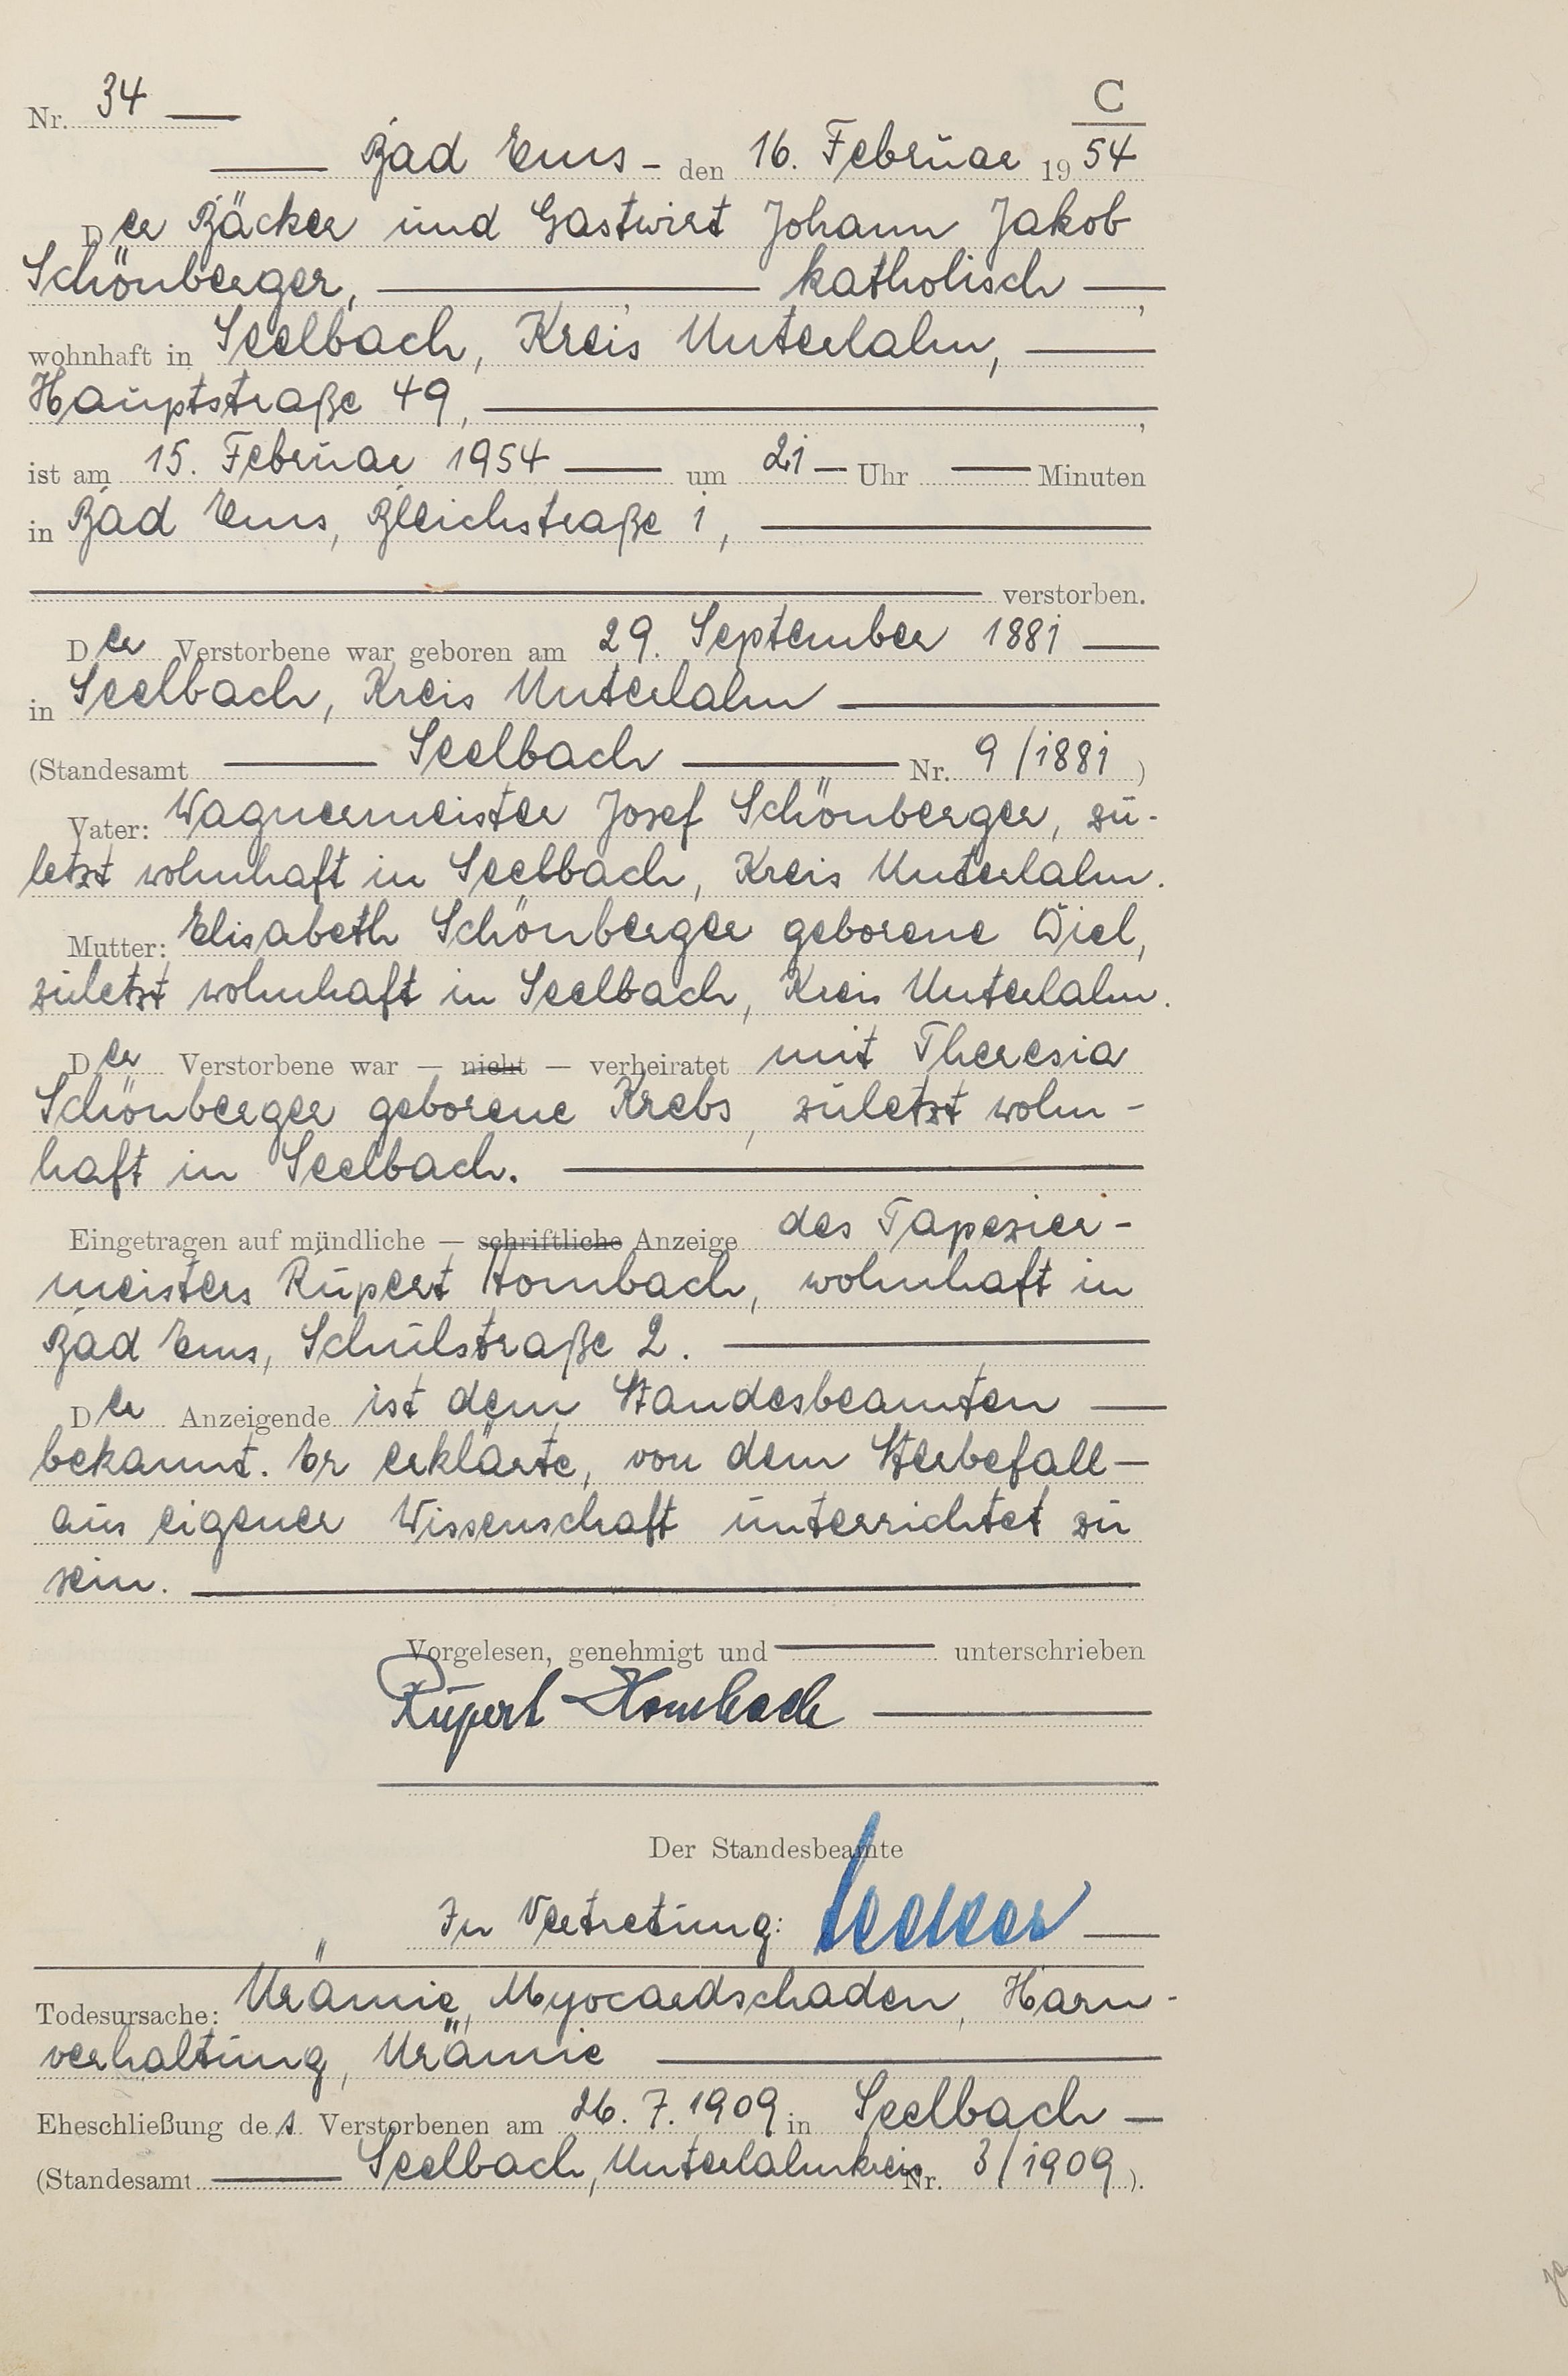 C
Nr. 34 —
— Bad Ems - den 16. Februar 1954
Der Bäcker und Gastwirt Johann Jakob
Schönberger, — katholisch —,
wohnhaft in Seelbach, Kreis Unterlahn, —
Hauptstraße 49, —,
ist am 15. Februar 1954 — um 21 — Uhr — Minuten
in Bad Ems, Bleichstraße 1, —
— verstorben.
Der Verstorbene war geboren am 29. September 1881 —
in Seelbach, Kreis Unterlahn —
(Standesamt — Seelbach — Nr. 9/1881)
Vater: Wagnermeister Josef Schönberger, zu-
letzt wohnhaft in Seelbach, Kreis Unterlahn.
Mutter: Elisabeth Schönberger geborene Diel,
zuletzt wohnhaft in Seelbach, Kreis Unterlahn.
Der Verstorbene war — nicht — verheiratet mit Theresia
Schönberger geborene Krebs, zuletzt wohn-
haft in Seelbach. —
Eingetragen auf mündliche — schriftliche Anzeige des Tapezier-
meisters Rupert Hombach, wohnhaft in
Bad Ems, Schulstraße 2. —
Der Anzeigende ist dem Standesbeamten —
bekannt. Er erklärte, von dem Sterbefall —
aus eigener Wissenschaft unterrichtet zu
sein. —
Vorgelesen, genehmigt und — unterschrieben
Rupert Hombach —
Der Standesbeamte
In Vertretung: —
Todesursache: Urämie, Myocardschaden, Harn-
verhaltung, Urämie —
Eheschließung des Verstorbenen am 26. 7. 1909 in Seelbach —
(Standesamt — Seelbach, Unterlahnkreis Nr. 3/1909).